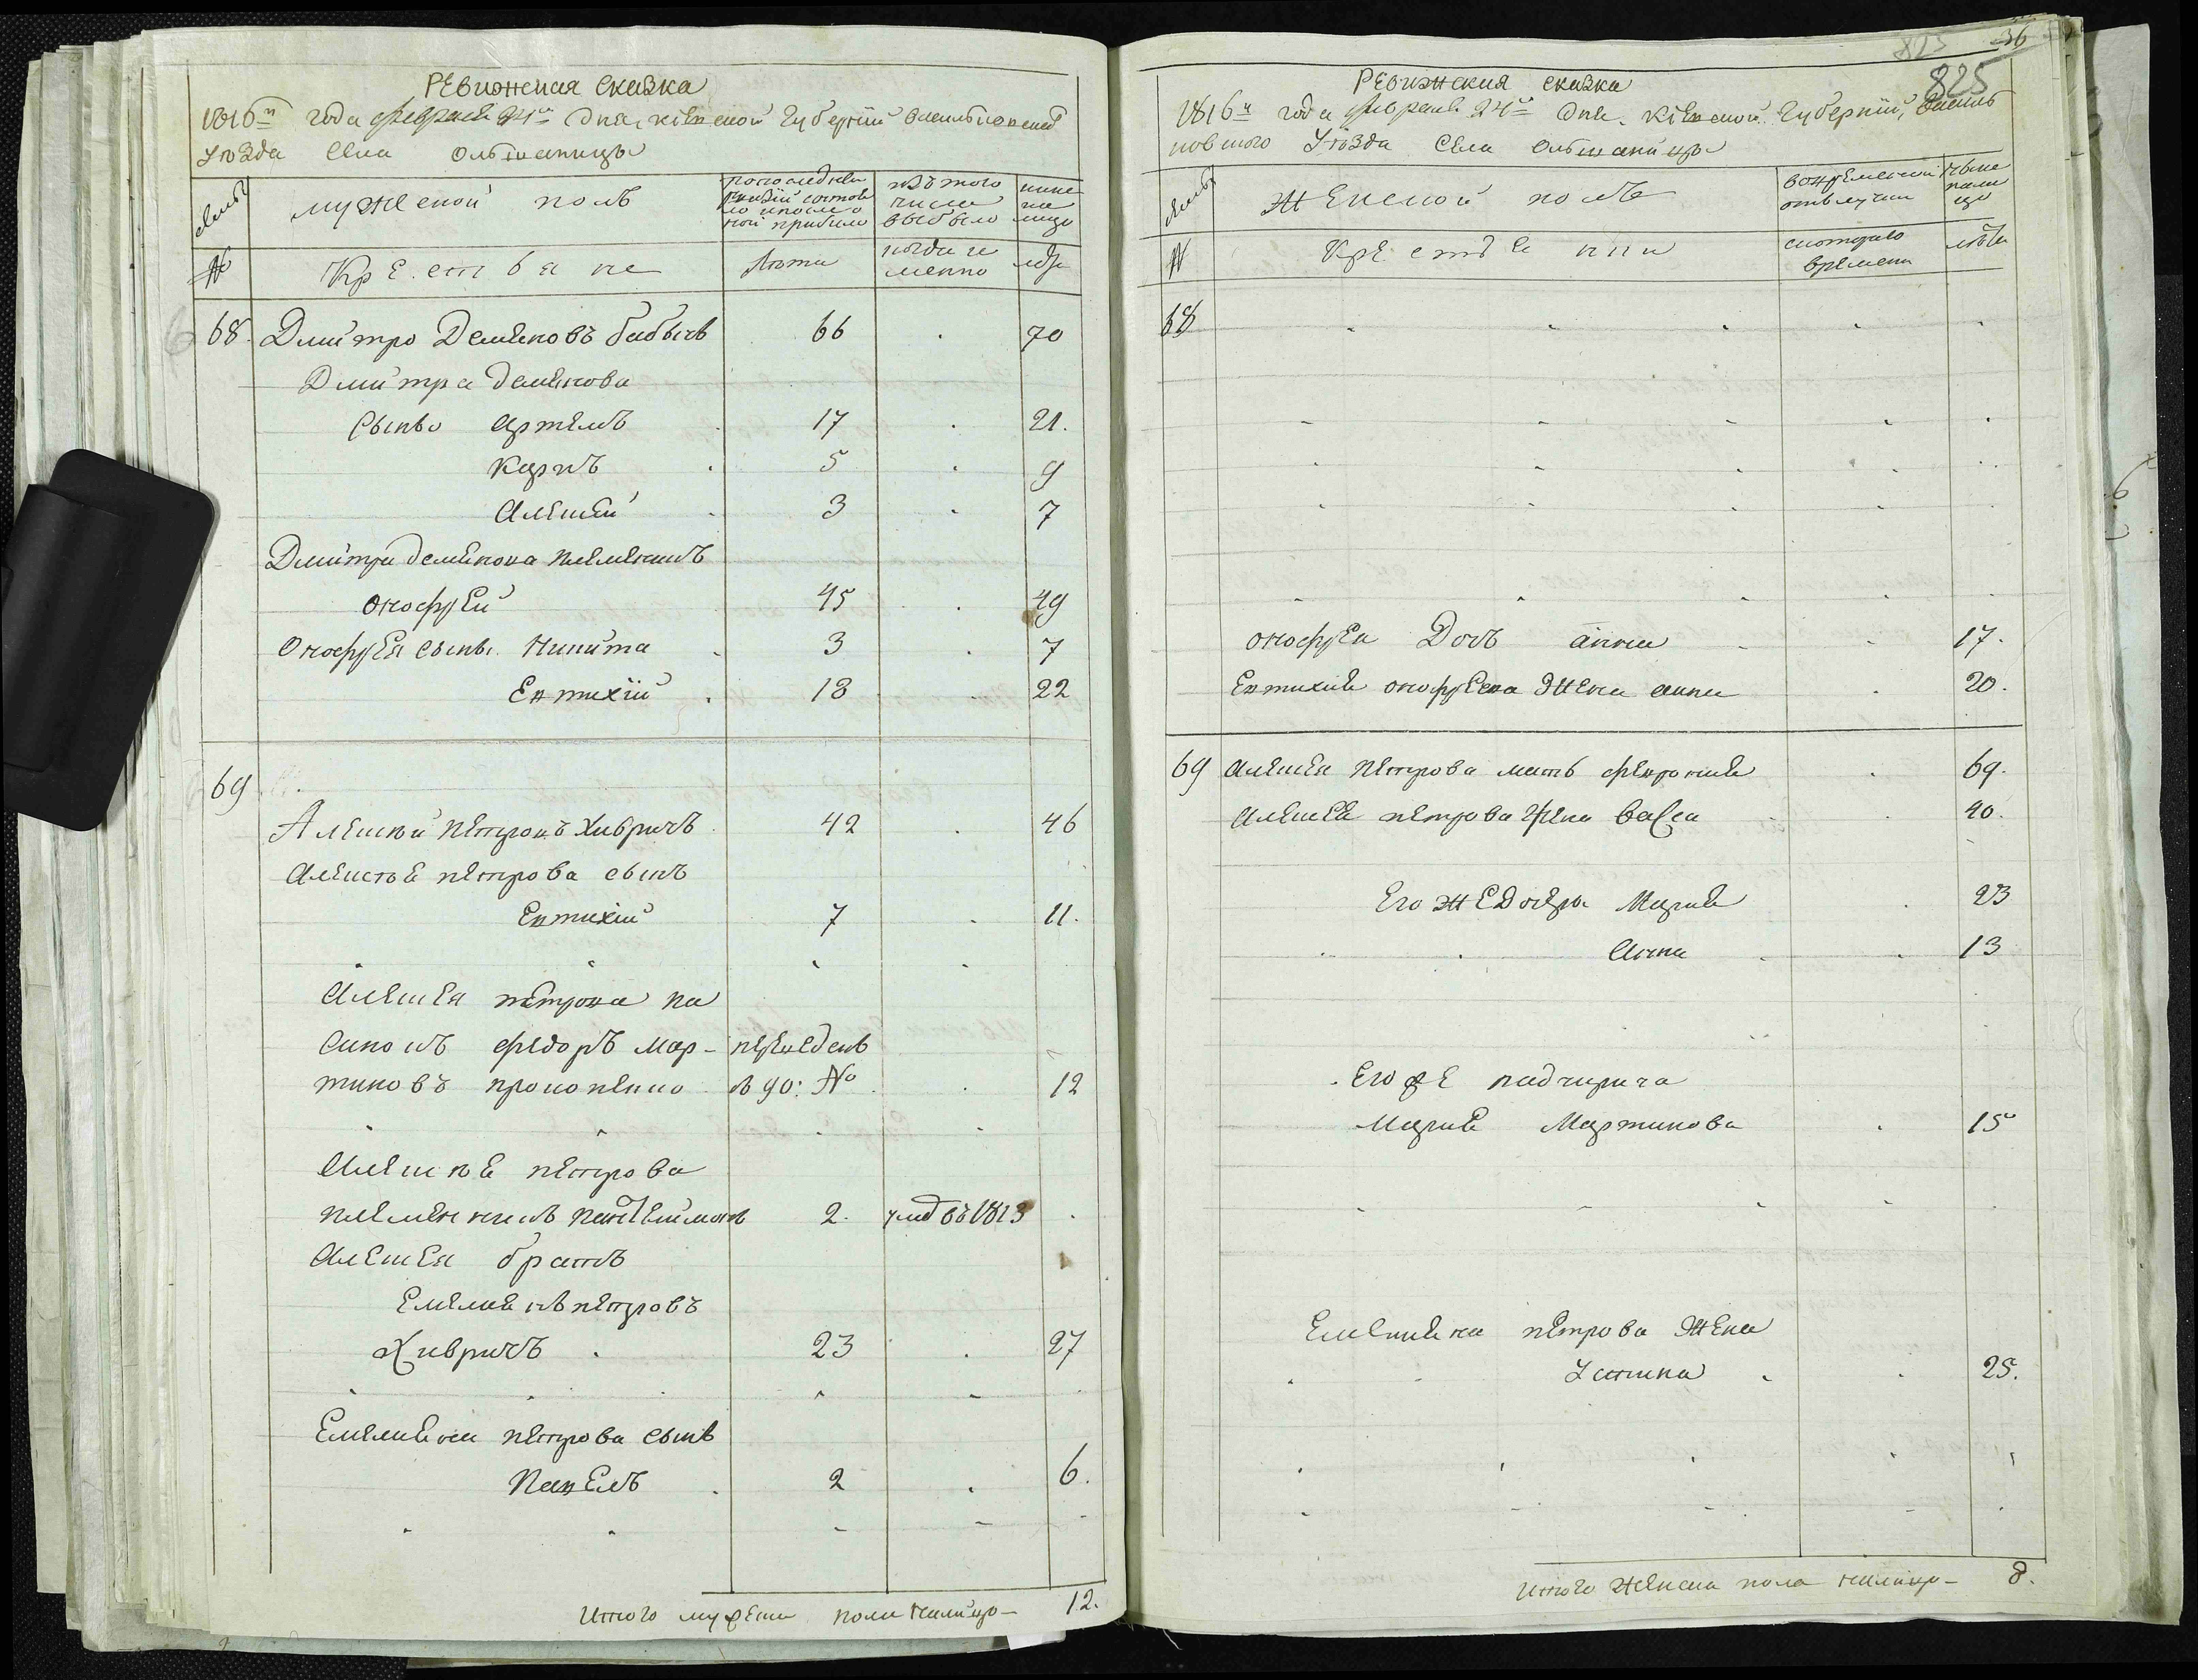 Ревижская сказка
1816го года февраля 24го дня, кіевской губерніи васильковской
уѣзда села ольшаницы
семьи
мужеской полъ
по последней ревизіи состояло и после оной прибыло
изъ того числа выбыло
ныне на лицо
№
Крестьяне
лѣта
когда именно
лѣта
68
Дмитро Демяновъ бабычъ
66
70
Дмитра демянова
сыны артемъ
17
21.
карпъ
5
9
Алексѣй
3
7
Дмитра демянова племянникъ
онофрей
45
49
Онофрея сыны Никита
3
7
Евтихій
18
22
69
Алексѣй петровъ хивричъ
42
46
Алексѣя петрова сынъ
Евтихій
7
11.
Алексѣя петрова па
синокъ федоръ мар-
переведенъ
тиновъ
в 90: №
12
Алексѣя петрова
племянникъ
2.
умер въ 1813
Алексея братъ
Емелианъ петровъ
Хивричъ
23
27
Емелиана петрова сынъ
Павелъ
2
6.
Итого мужеска пола налицо-
12.
36
825
825
Ревижская сказка
1816го года февраля 24го дня. кіевской губерніи, василь
ковского уѣзда села ольшаницы
семьи
Женской полъ
во временной отлучки
ныне налицо
№
Крестьянки
с котораго времени
лѣта
68
онофрея дочъ анна
17.
Евтихия онофреева жена анна
20.
69
алексея петрова мать феврония
69.
алексея петрова жена васса
40.
Его же дочеры Мария
23
Анна
13
Его же падчирича
Мария Мартинова
15
Емелиана петрова жена
Устина
25.
Итого женска пола налицо-
8.